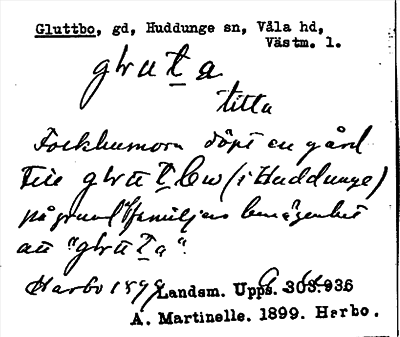 Gluttbo, gd, Huddunge sn, Våla hd,
Västm. l.
titta
Folkhumorn döpt en gård
till (i Huddunge)
på grund familjens benägenhet
att
Harbo 1899 Landsm. Upps. 303:936
A. Martinelle. 1899. Harbo.